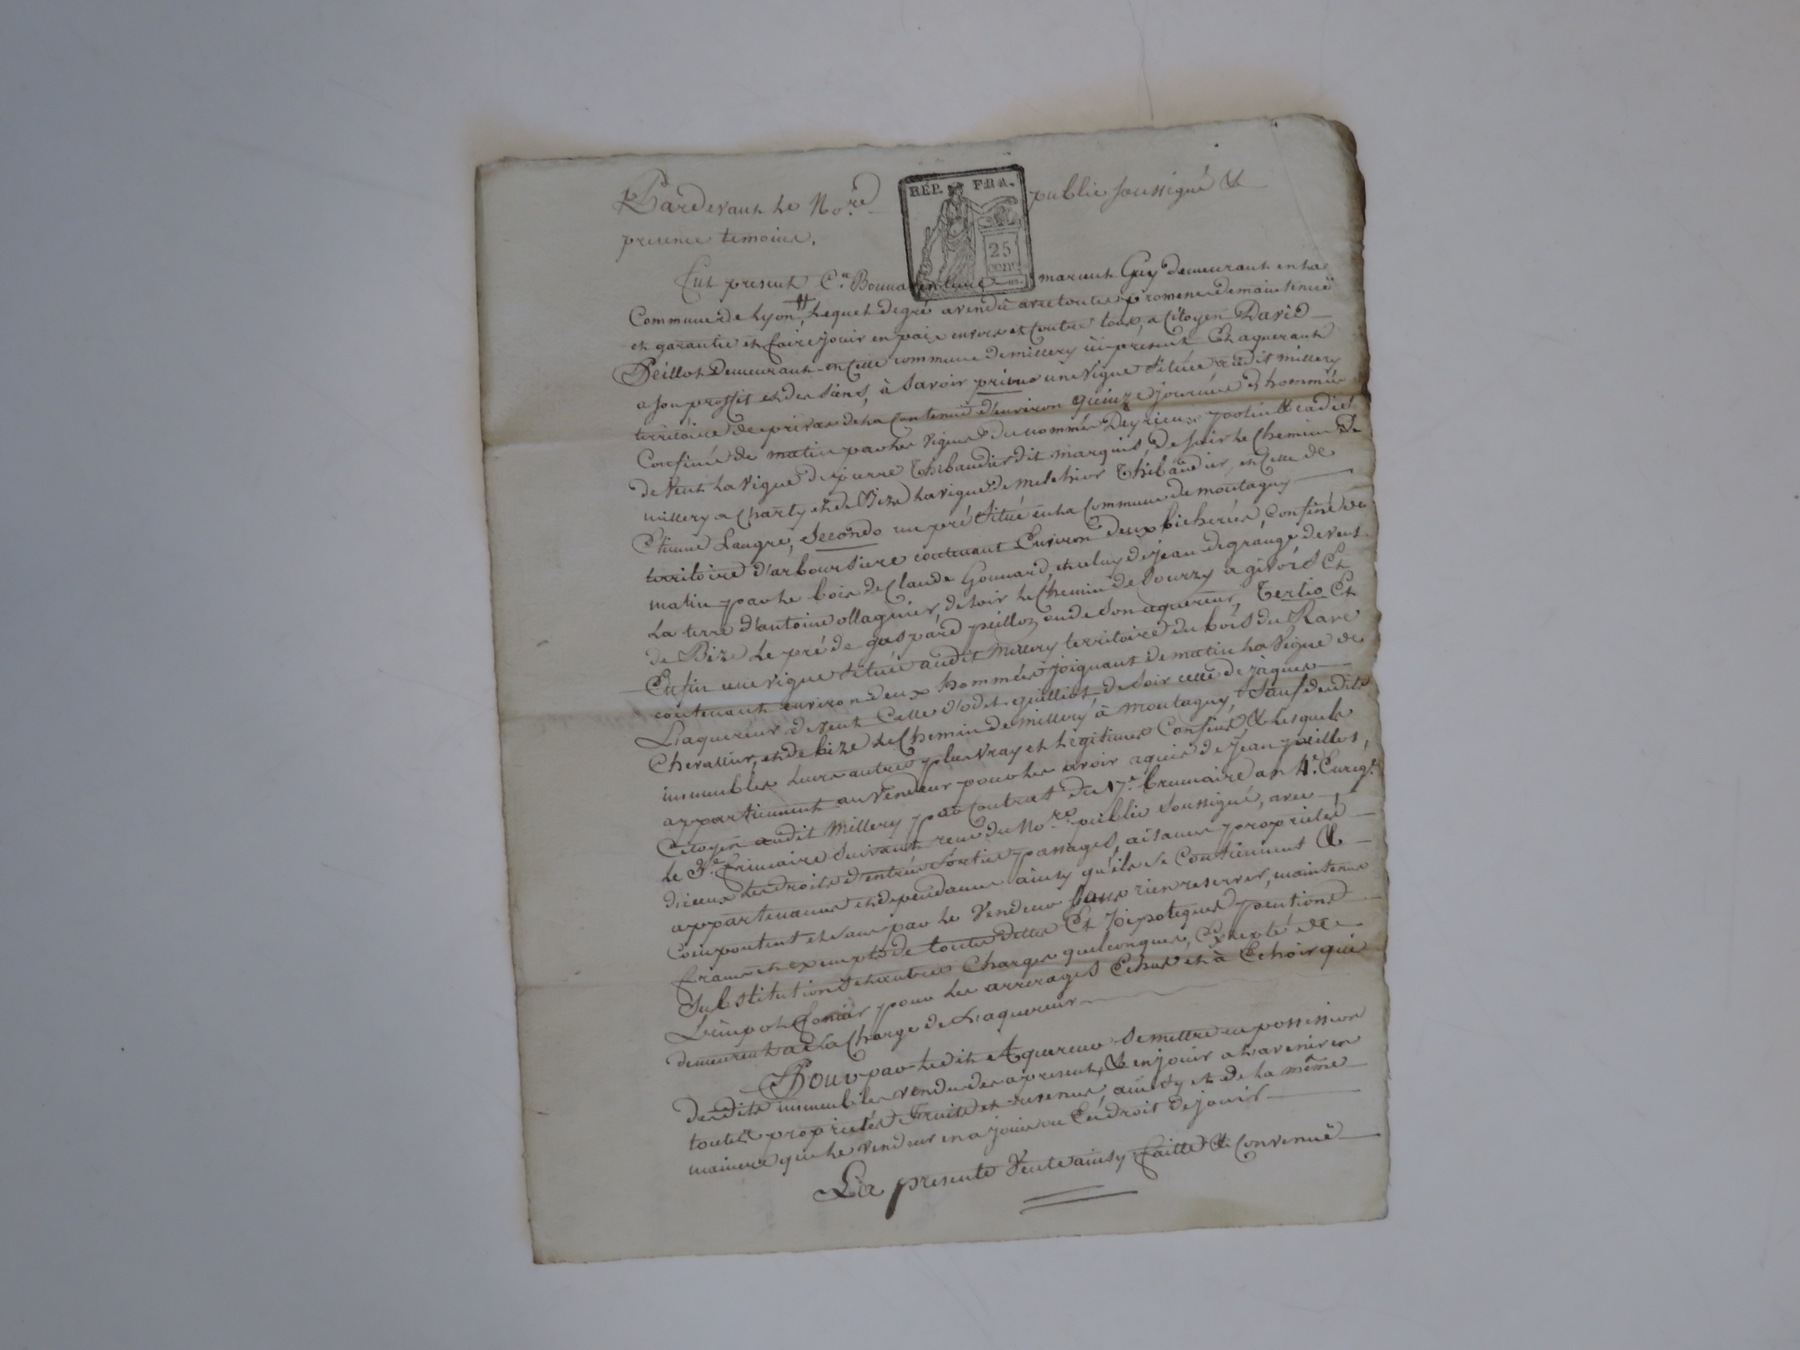 Pardevant le No.re public soussigné &
presence temoins.
REP. FRA.
25
CENT.
Fut present C.n Bonnaventure marceuh Guy demeurant en la
Commune de Lyon, lequel de gré a vendu avec toutes promene de maintenue
et garantie et faire jouir en paix envers et contre tous, a Citoyen David
Peillot demeurant en cette commune de millery ici present et aquerant
a son proffit et des siens, à savoir primo une vigne située audit millery
territoire de privas de la contenue d'environ quinze journée d'hommée
Confiné de matin par les vignes du nommé Deyrieux
de vent la vigne de pierre Thibaudier dit marquis, de soir le chemin de
millery a Charly et de Bize la vigne de melchior Thibaudier, et celle de
Etienne Laugré, Secondo un pré situé en la commune de montagny
territoire d'arboursiere contenant Environ deux bicherées, confiné de
matin par le bois de Claude Gonnard, et celuy de jean degrange de vent
La terre d'antoine ollagnier, de soir le chemin de Sourzy a givors Et
de Bize le pré de gaspard peillot ou de son aquereur, Tertio Et
Enfin une vigne située audit Millery territoire du bois du Rave
contenant environ deux hommées joignant de matin la vigne de
L'aquereur de vent celle d'odet guilliot, de soir celle de jaques
Chevallier, et de bize le Chemin de millery à montagny, Sauf desdits
immeubles leurs autres plus vray et legitimes Confins, & lesquels
appartiennent au Vendeur pour les avoir aquis de Jean peillot,
Citoyen audit Millery par Contrat du 17.e brumaire an 4.e Enreg.t
le 3.e frimaire suivant reçu du No.re public soussigné, avec
d'iceux les droits d'entrée sortie passages, aisances proprietés
appartenances et dependances ainsy qu'ils se Contiennent &
Comportent et sans par le Vendeur sans rien reserver, maintenus
francs et exempts de toutes dettes Et hipoteques pentions
Substitutions et autres Charges quelconques, Excepté de
L'impot foncier pour les arrerages Echus et à Echoir qui
demeurent a la Charge de L'aquereur
Pour par ledit Aquereur se mettre en possession
desdits immeubles vendu des a present, & en jouir a l'avenir en
toutes proprietés fruits et revenus, ainsy et de la même
maniere que le vendeur en a joui ou Eu droit de jouir.
La presente Vente ainsy faitte & Convenue